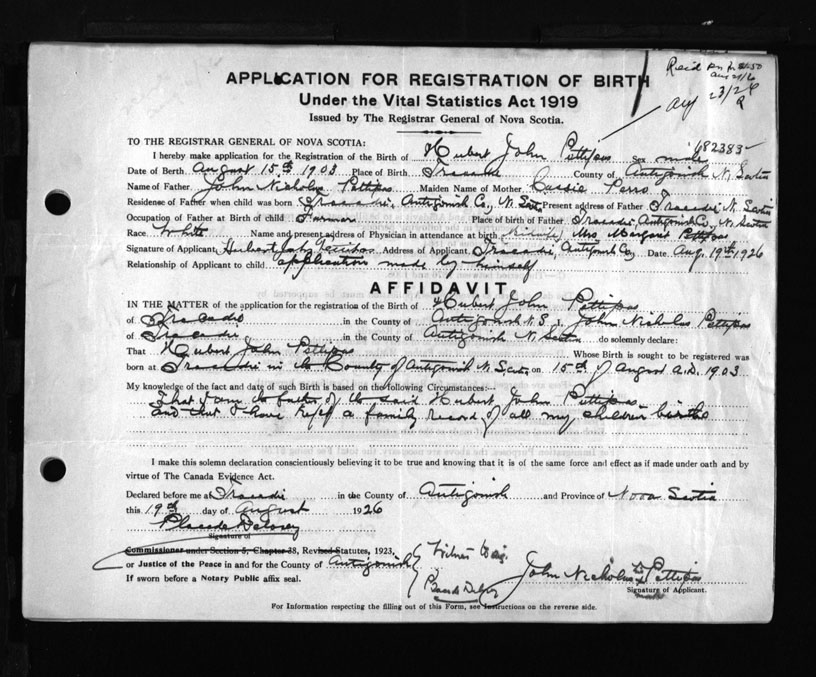 Rec'd
Aug 23/26
APPLICATION FOR REGISTRATION OF BIRTH
Under the Vital Statistics Act 1919
Issued by The Registrar General of Nova Scotia.
682383
TO THE REGISTRAR GENERAL OF NOVA SCOTIA:
I hereby make application for the Registration of the Birth of Hubert John Pettipas Sex male
Date of Berth August 15th 1903 Place of Birth Tracadie County of Antigonish N. Scotia
Name of Father John Nicholas Pettipas Maiden Name of Mother Cassie Perro
Residense of Father when child was born Tracadie, Antigonish Co., N. Scotia Present address of Father Tracadie N. Scotia
Occupation of Father at Birth of child Farmer Place of birth of Father Tracadie, Antigonish Co., N. Scotia
Race White Name and present address of Physician in attendance at birth (Midwife) Mrs Margaret Pettipas
Signature of Applicant Hubert John Pettipas Address of Applicant Tracadie, Antigonish Co, Date Aug. 19th 1926
Relationship of Applicant to child application made by himself
AFFIDAVIT
IN THE MATTER of the application for the registration of the Birth of Hubert John Pettipas
of Tracadie in the County of Antigonish N.S. I, John Nicholas Pettipas
of Tracadie in the County of Antigonish N. Scotia do solemnly declare:
That Hubert John Pettipas Whose Birth is sought to be registered was
born at Tracadie in the County of Antigonish N. Scotia on 15th of August A.D. 1903
My knowledge of the fact and date of such Birth is based on the following Circumstances:—
That I am the father of the said Hubert John Pettipas
and that I have kept a family record of all my children births
I make this solemn declaration conscientiously believing it to be true and knowing that it is of the same force and effect as if made under oath and by
virtue of The Canada Evidence Act.
Declared before me at Tracadie in the County of Antigonish and Province of Nova Scotia
this 19th day of August 1926
Signature of
Commissioner under Section 5, Chapter 38, Revised Statutes, 1923,
or Justice of the Peace in and for the County of Antigonish
If sworn before a Notary Public affix seal.
Witness
John Nicholas Pettipas
Signature of Applicant.
For Information respecting the filling out of this Form, see Instructions on the reverse side.